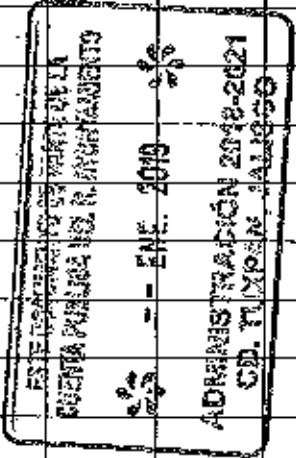 ESTE DOCUMENTO ES PARTE DE LA
CUENTA PUBLICA DEL H. AYUNTAMIENTO
-- ENE. 2019
ADMINISTRACIÓN 2018-2021
CD. TUXPAN JALISCO